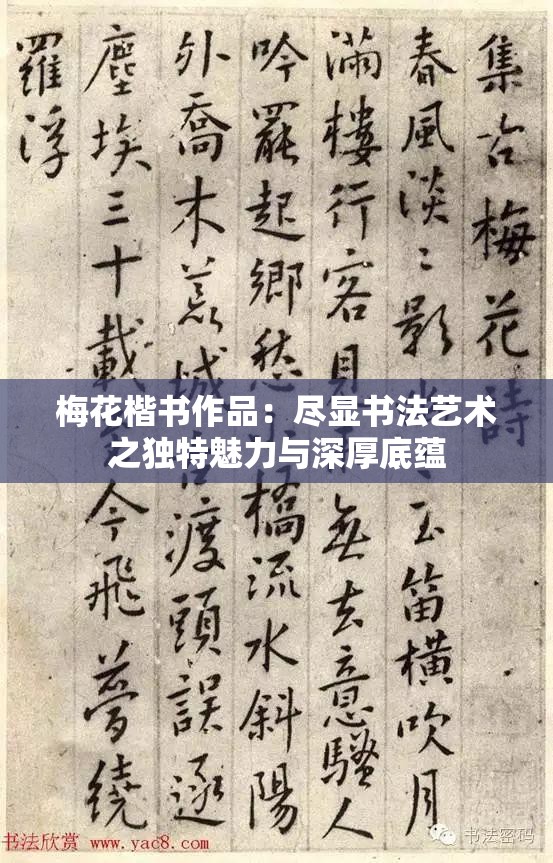 集古梅花詩
春風淡〻影〻玉笛橫吹月
滿樓行客見無去意騷人
吟罷起鄉愁橋流水斜陽
外喬木荒城古渡頭誤逐
塵埃三十載今飛夢繞
羅浮
梅花楷书作品：尽显书法艺术
之独特魅力与深厚底蕴
书法欣赏 www.yac8.com
书法密码